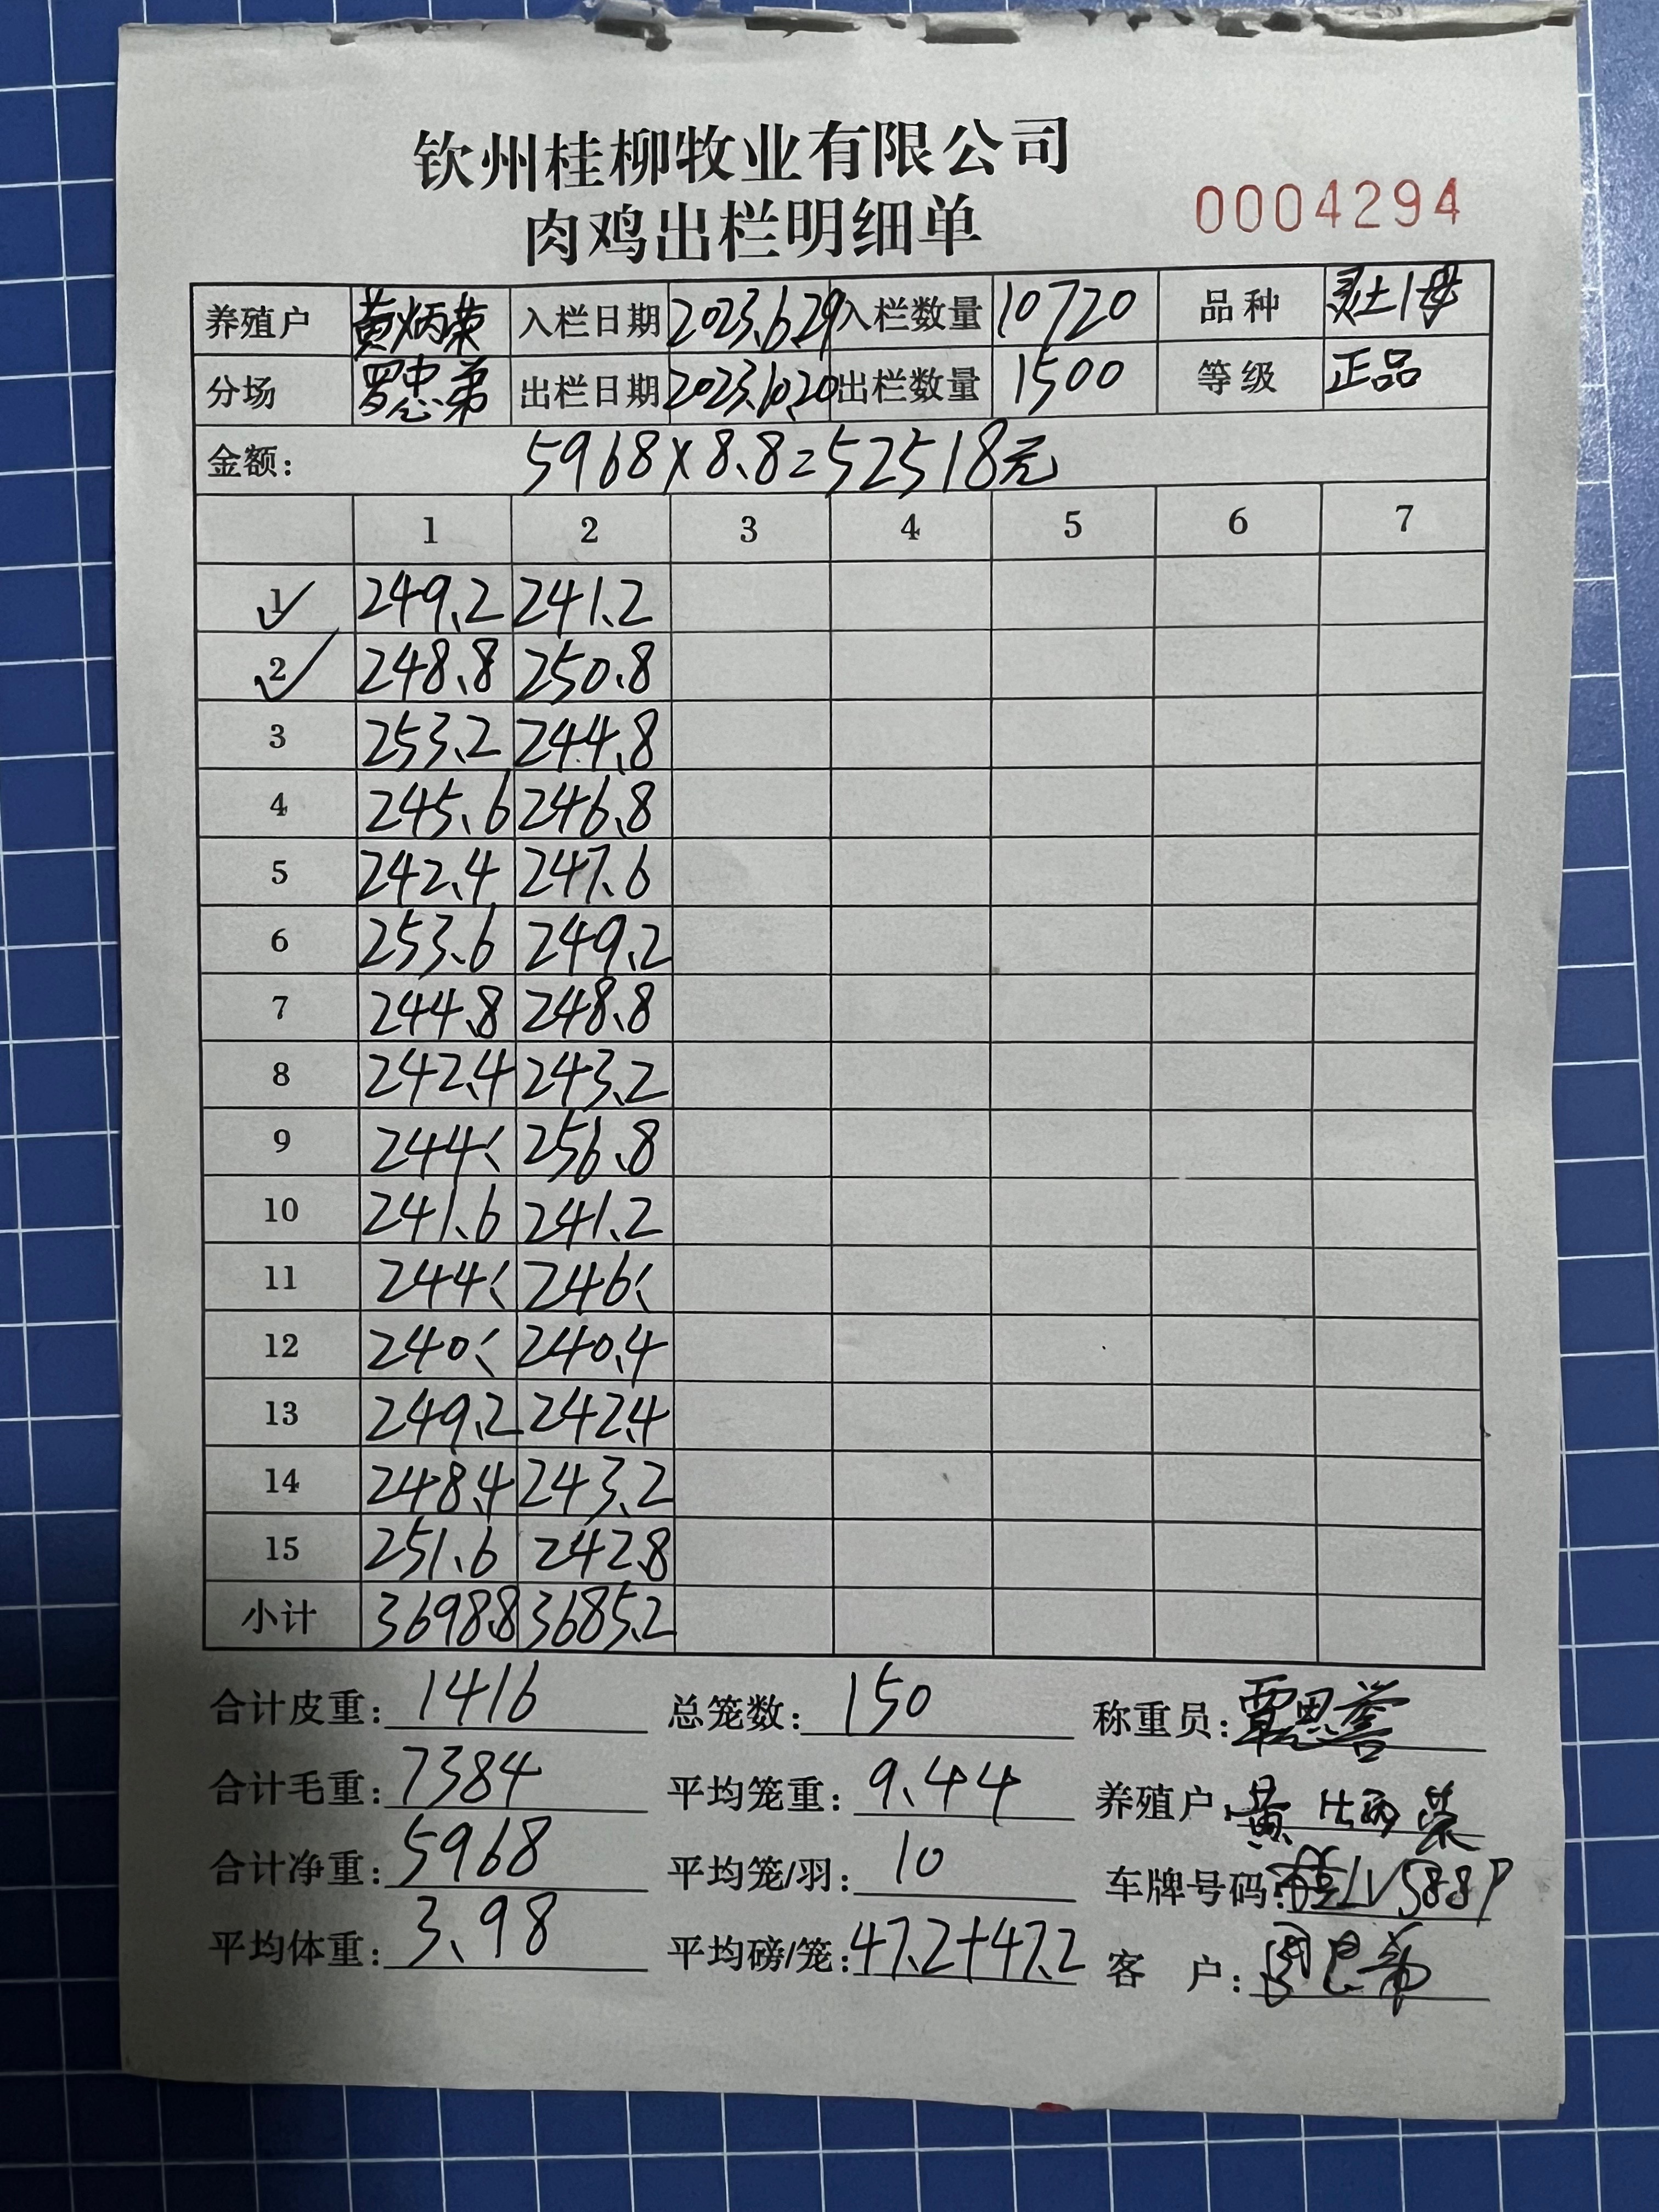 钦州桂柳牧业有限公司
肉鸡出栏明细单 0004294
养殖户 黄炳荣 入栏日期 2023、6、29 入栏数量 10720 品种 灵土1母
分场 罗忠弟 出栏日期 2023、10、20 出栏数量 1500 等级 正品
金额： 5968×8、8=52518元
1 2 3 4 5 6 7
1 249、2 241、2
2 248、8 250、8
3 253、2 244、8
4 245、6 246、8
5 242、4 247、6
6 253、6 249、2
7 244、8 248、8
8 242、4 243、2
9 244 256、8
10 241、6 241、2
11 244 246
12 240 240、4
13 249、2 242、4
14 248、4 243、2
15 251、6 242、8
小计 3698、8 3685、2
合计皮重： 1416 总笼数： 150 称重员： 覃思誉
合计毛重： 7384 平均笼重： 9、44 养殖户： 黄炳荣
合计净重： 5968 平均笼/羽： 10 车牌号码：
平均体重： 3、98 平均磅/笼： 47、2+47、2 客 户：